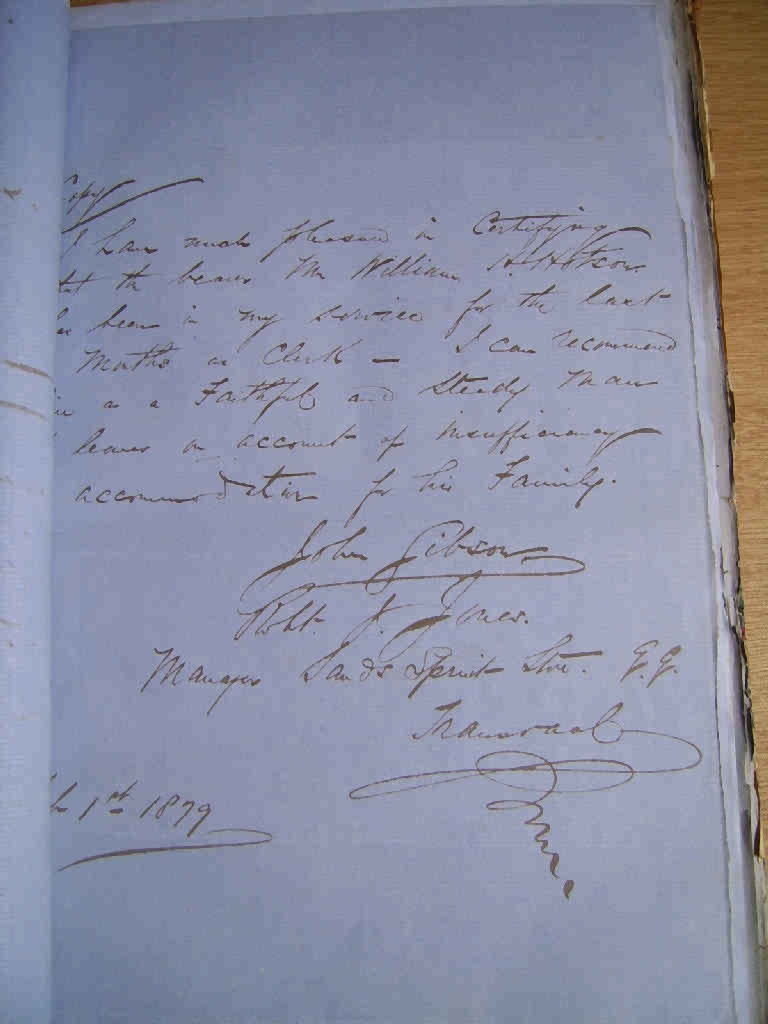 Copy
I have much pleasure in Certifying
that the bearer Mr William H. Hotson
has been in my service for the last
Months as Clerk - I can recommend
as a Faithful and Steady Man
leaves on account of insufficiency
accommodation for his Family.
John Gibson
Robt. J. Jones.
Manager Sands Spruit Store. G.G.
Transvaal
1st 1879